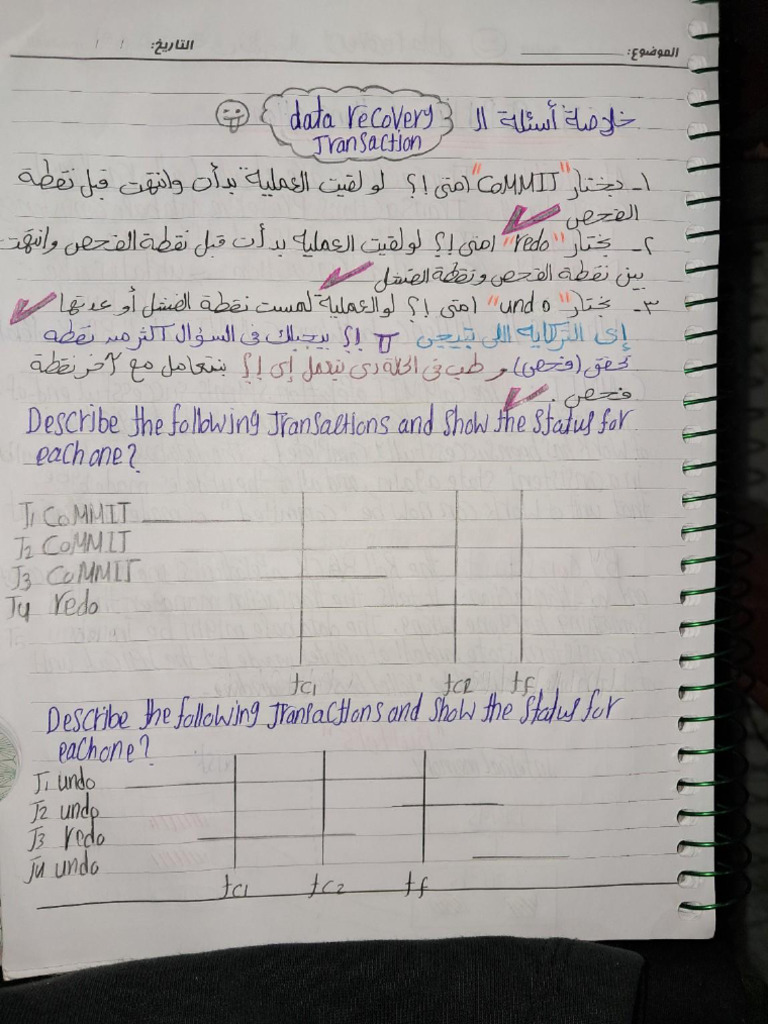 الموضوع: التاريخ: / /
خلاصة أسئلة الـ data recovery
Transaction
١- بختار "COMMIT" امتى إ؟ لو لقيت العملية بدأت وانتهت قبل نقطة
الفحص
٢- بختار "redo" امتى إ؟ لو لقيت العملية بدأت قبل نقطة الفحص وانتهت
بين نقطة الفحص ونقطة الفشل
٣- بختار "undo" امتى إ؟ لو العملية لمست نقطة الفشل أو عدتها
إى التركاية اللى تبيجى إ؟ بيجبلك فى السؤال أكثر من نقطة
تحقق (فحص) و طب فى الحلة دى بنعمل إى إ؟ بنتعامل مع آخر نقطة
فحص.
Describe the following Transactions and show the status for
each one?
T1 COMMIT
T2 COMMIT
T3 COMMIT
T4 redo
tc1 tc2 tf
Describe the following Transactions and show the status for
each one?
T1 undo
T2 undo
T3 redo
T4 undo
tc1 tc2 tf